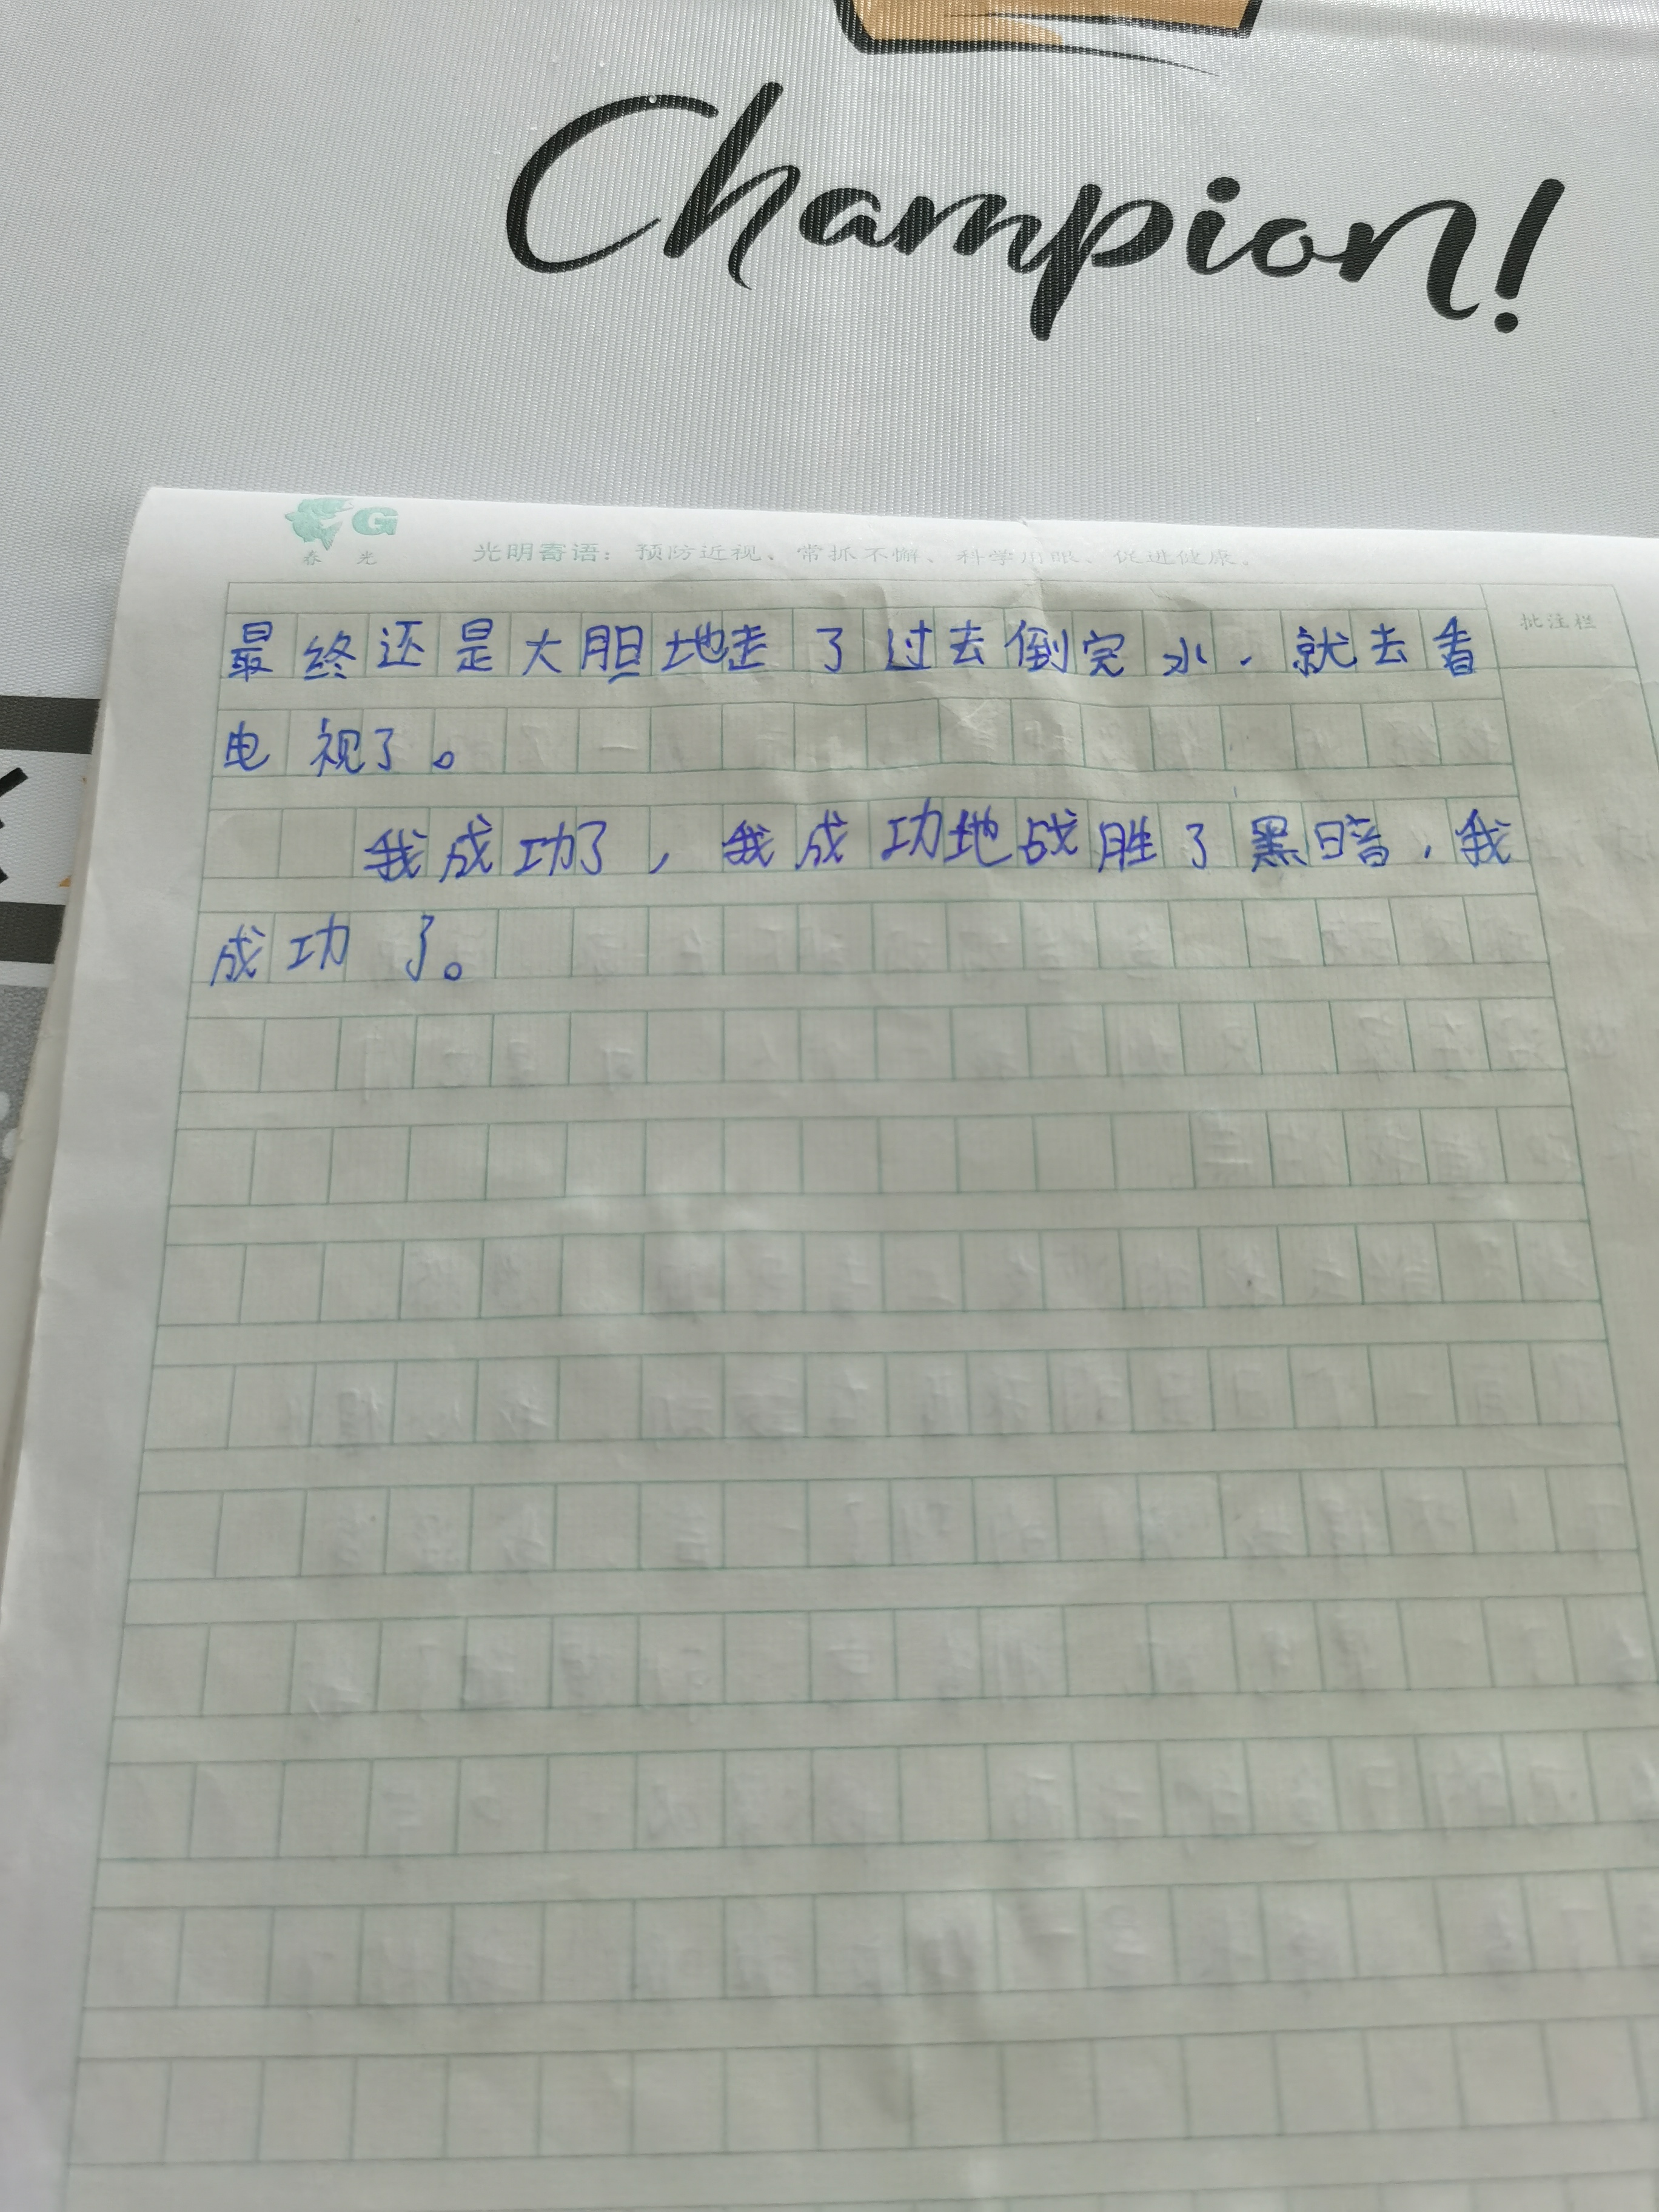 Champion!
G
春光
光明寄语：预防近视、常抓不懈、科学用眼、促进健康。
批注栏
最终还是大胆地走了过去倒完水，就去看
电视了。
我成功了，我成功地战胜了黑暗，我
成功了。